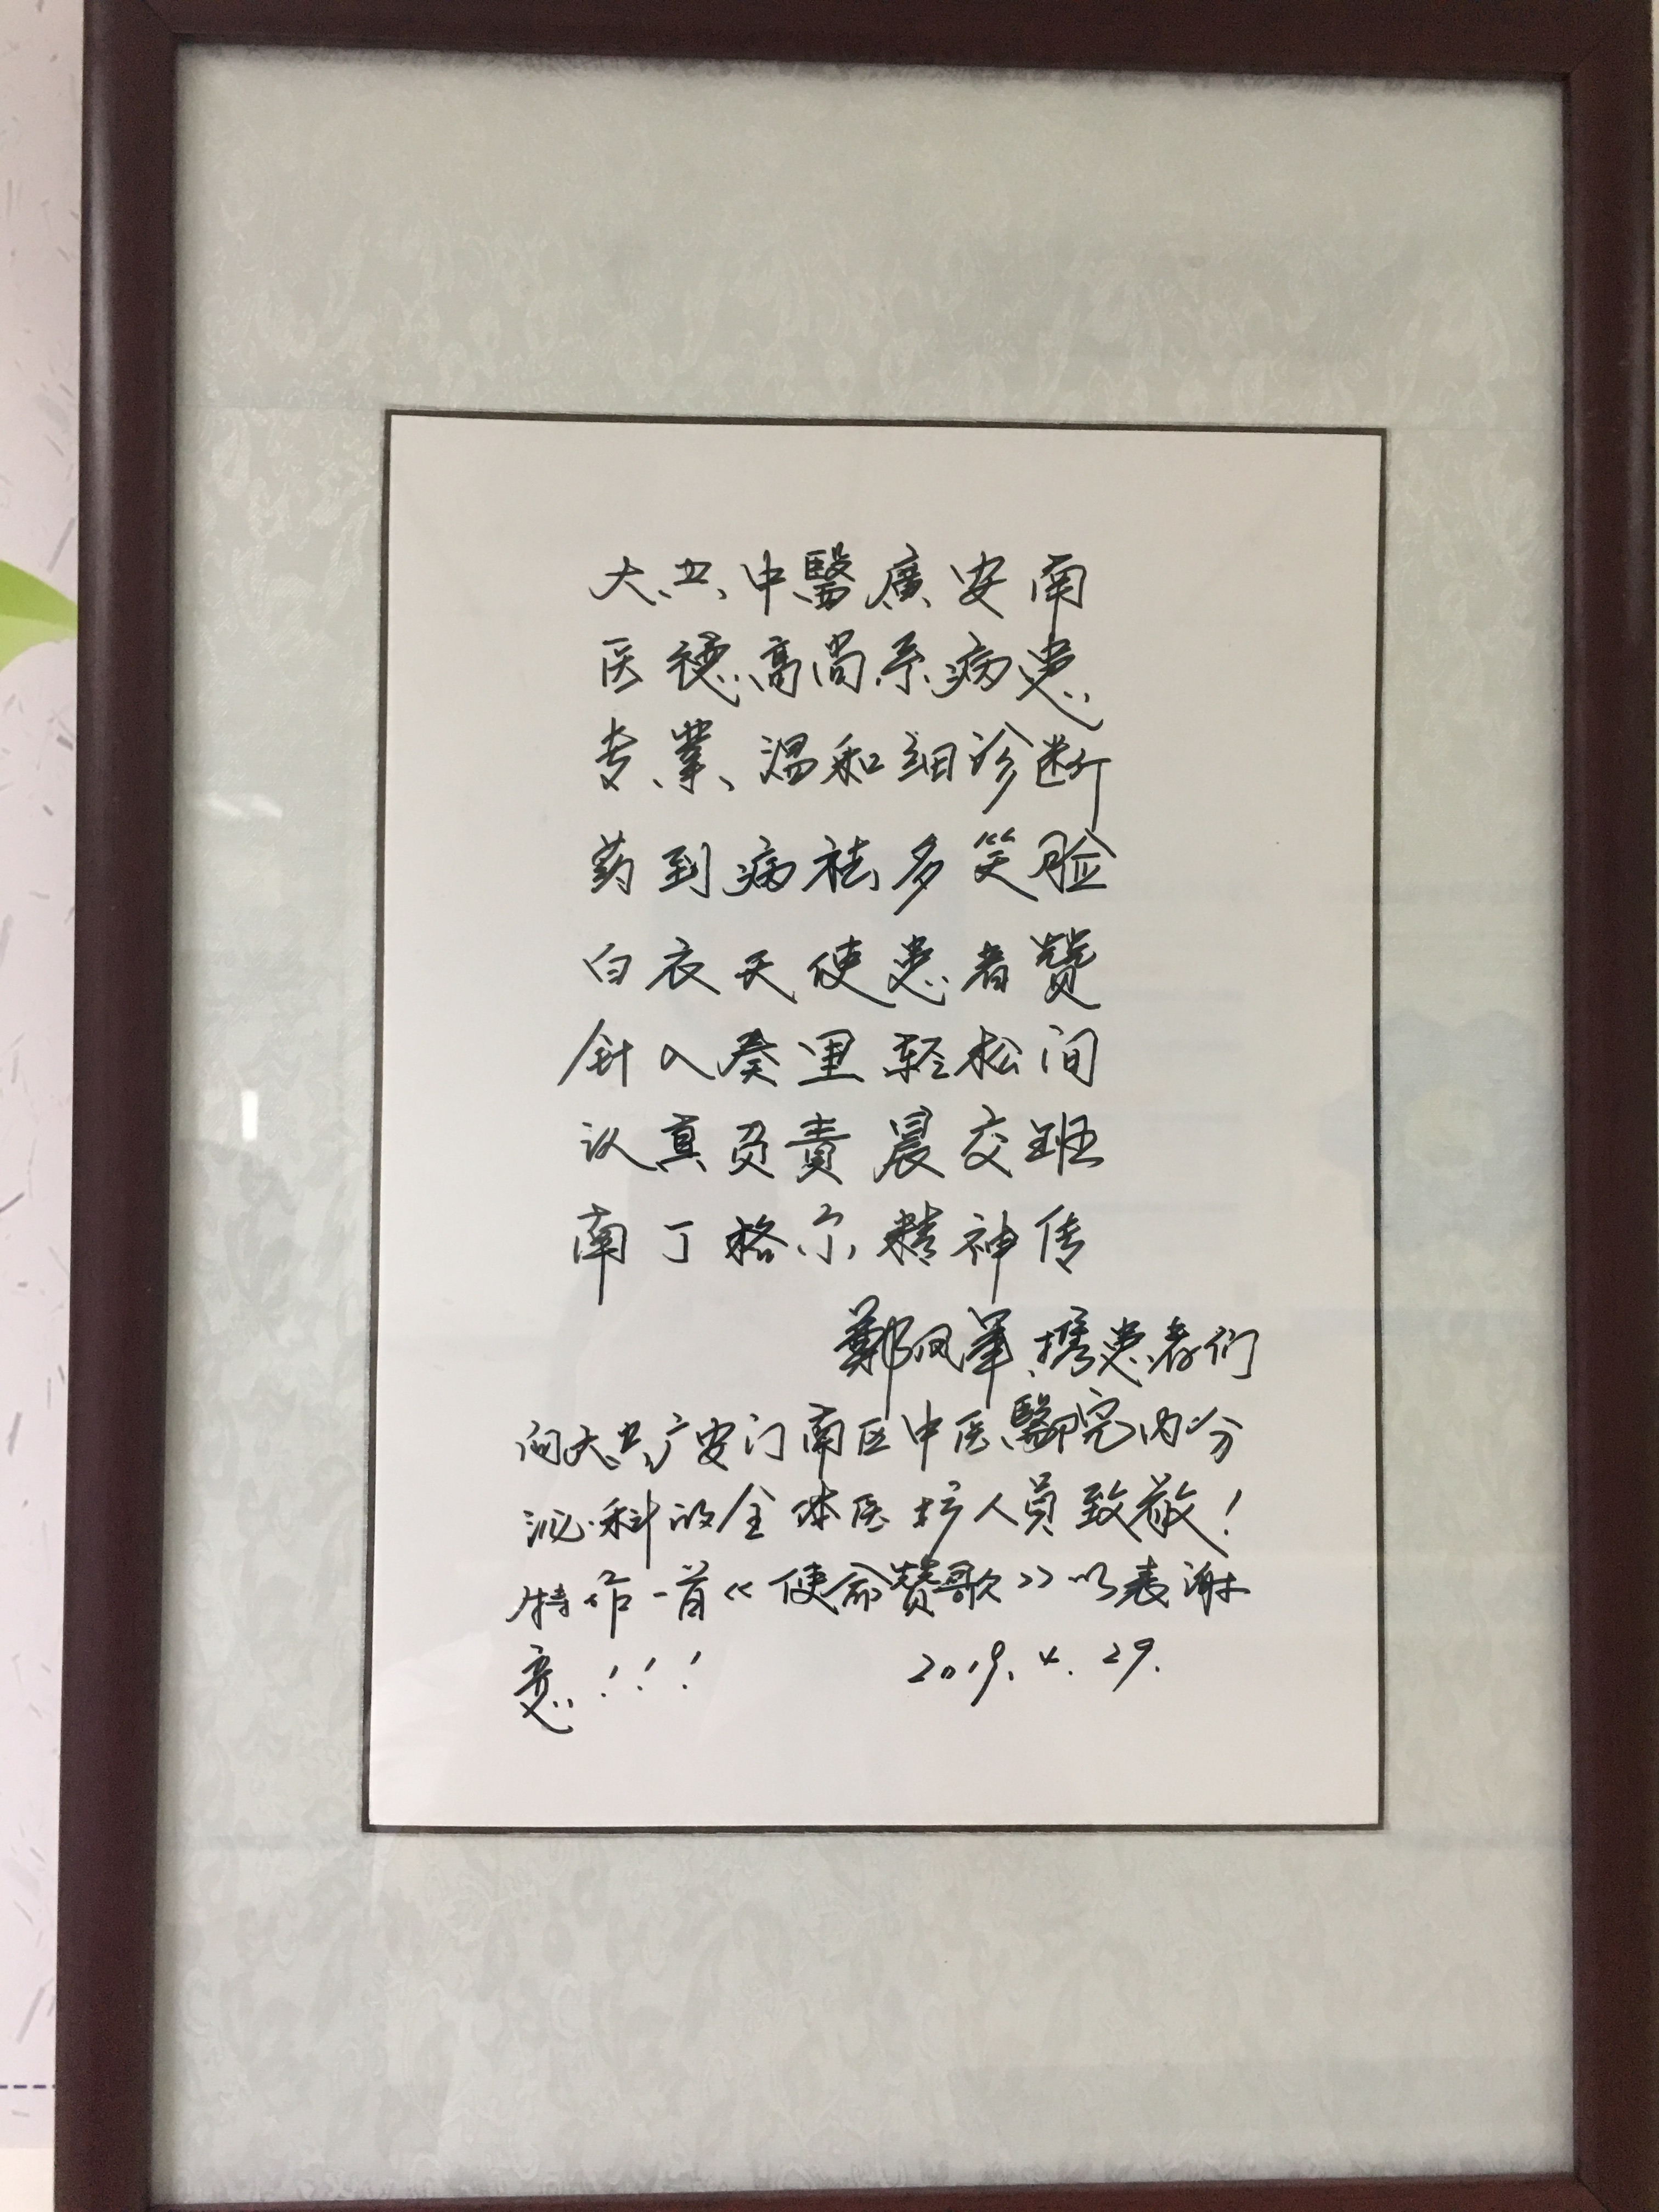 大兴中醫廣安南
医德高尚系病患
专業温和细诊断
药到病祛多笑脸
白衣天使患者赞
针入葵里轻松间
认真负责晨交班
南丁格尔精神传
鄭凤军携患者们
向大兴广安门南区中医醫院内分
泌科的全体医护人员致敬！
特作一首《使命赞歌》以表谢
意！！！ 2019.4.29.